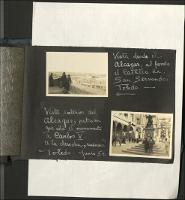 Vista desde el
Alcazar, al fondo
el Castillo de
San Servando.
Toledo
Vista interior del
Alcazar, patio en
que está el monumento
a Carlos V
a la derecha,
Toledo - junio 57